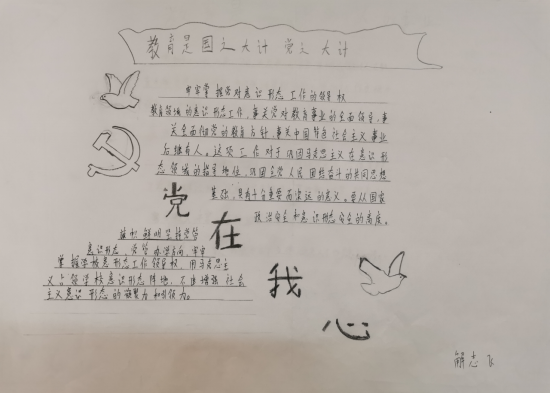 教育是国之大计 党之大计
牢牢掌握党对意识形态工作的领导权
教育领域的意识形态工作,事关党对教育事业的全面领导,事
关全面贯彻党的教育方针,事关中国特色社会主义事业
后继有人。这项工作对于巩固马克思主义在意识形
态领域的指导地位,巩固全党人民团结奋斗的共同思想
基础,具有十分重要而深远的意义。要从国家
政治安全和意识形态安全的高度,
旗帜鲜明坚持党管
意识形态,党管办学方向,牢牢
掌握学校意形态工作领导权,用马克思主
义占领学校意识形态阵地,不断增强社会
主义意识形态的凝聚力和引领力。
党
在
我
心
解志飞